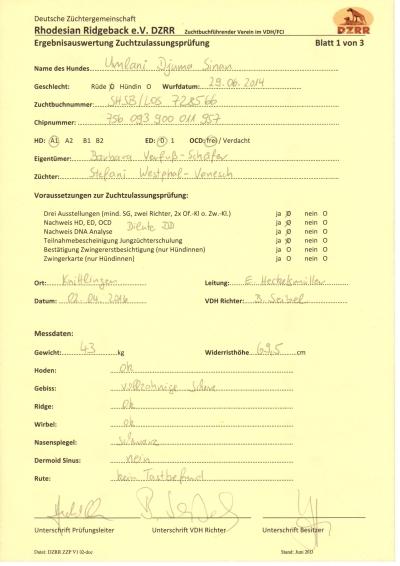 Deutsche Züchtergemeinschaft
Rhodesian Ridgeback e.V. DZRR Zuchtbuchführender Verein im VDH/FCI
DZRR
Ergebnisauswertung Zuchtzulassungsprüfung Blatt 1 von 3
Name des Hundes Umlani Djuma Sinan
Geschlecht: Rüde O Hündin O Wurfdatum: 29.06.2014
Zuchtbuchnummer: SHSB/LOS 728566
Chipnummer: 756 093 900 011 957
HD: A1 A2 B1 B2 ED: 0 1 OCD: frei / Verdacht
Eigentümer: Barbara Verfuß-Schäfer
Züchter: Stefani Westphal-Vonesch
Voraussetzungen zur Zuchtzulassungsprüfung:
Drei Ausstellungen (mind. SG, zwei Richter, 2x Of.-Kl o. Zw.-Kl.) ja O nein O
Nachweis HD, ED, OCD ja O nein O
Dilute DD
Nachweis DNA Analyse ja O nein O
Teilnahmebescheinigung Jungzüchterschulung ja O nein O
Bestätigung Zwingererstbesichtigung (nur Hündinnen) ja O nein O
Zwingerkarte (nur Hündinnen) ja O nein O
Ort: Knittlingen Leitung: E. Heckelsmüller
Datum: 02.04.2016 VDH Richter: B. Seibel
Messdaten:
Gewicht: 43 kg Widerristhöhe 69,5 cm
Hoden: ok
Gebiss: vollzahnige Schere
Ridge: ok
Wirbel: ok
Nasenspiegel: schwarz
Dermoid Sinus: nein
Rute: kein Tastbefund
Unterschrift Prüfungsleiter Unterschrift VDH Richter Unterschrift Besitzer
Datei: DZRR ZZP V1 02-doc Stand: Juni 2013